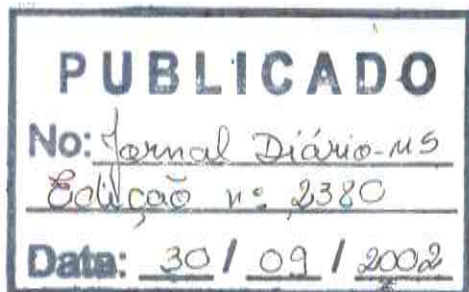 PUBLICADO
No: Jornal Diário-MS
Edição nº 2380
Data: 30 / 09 / 2002